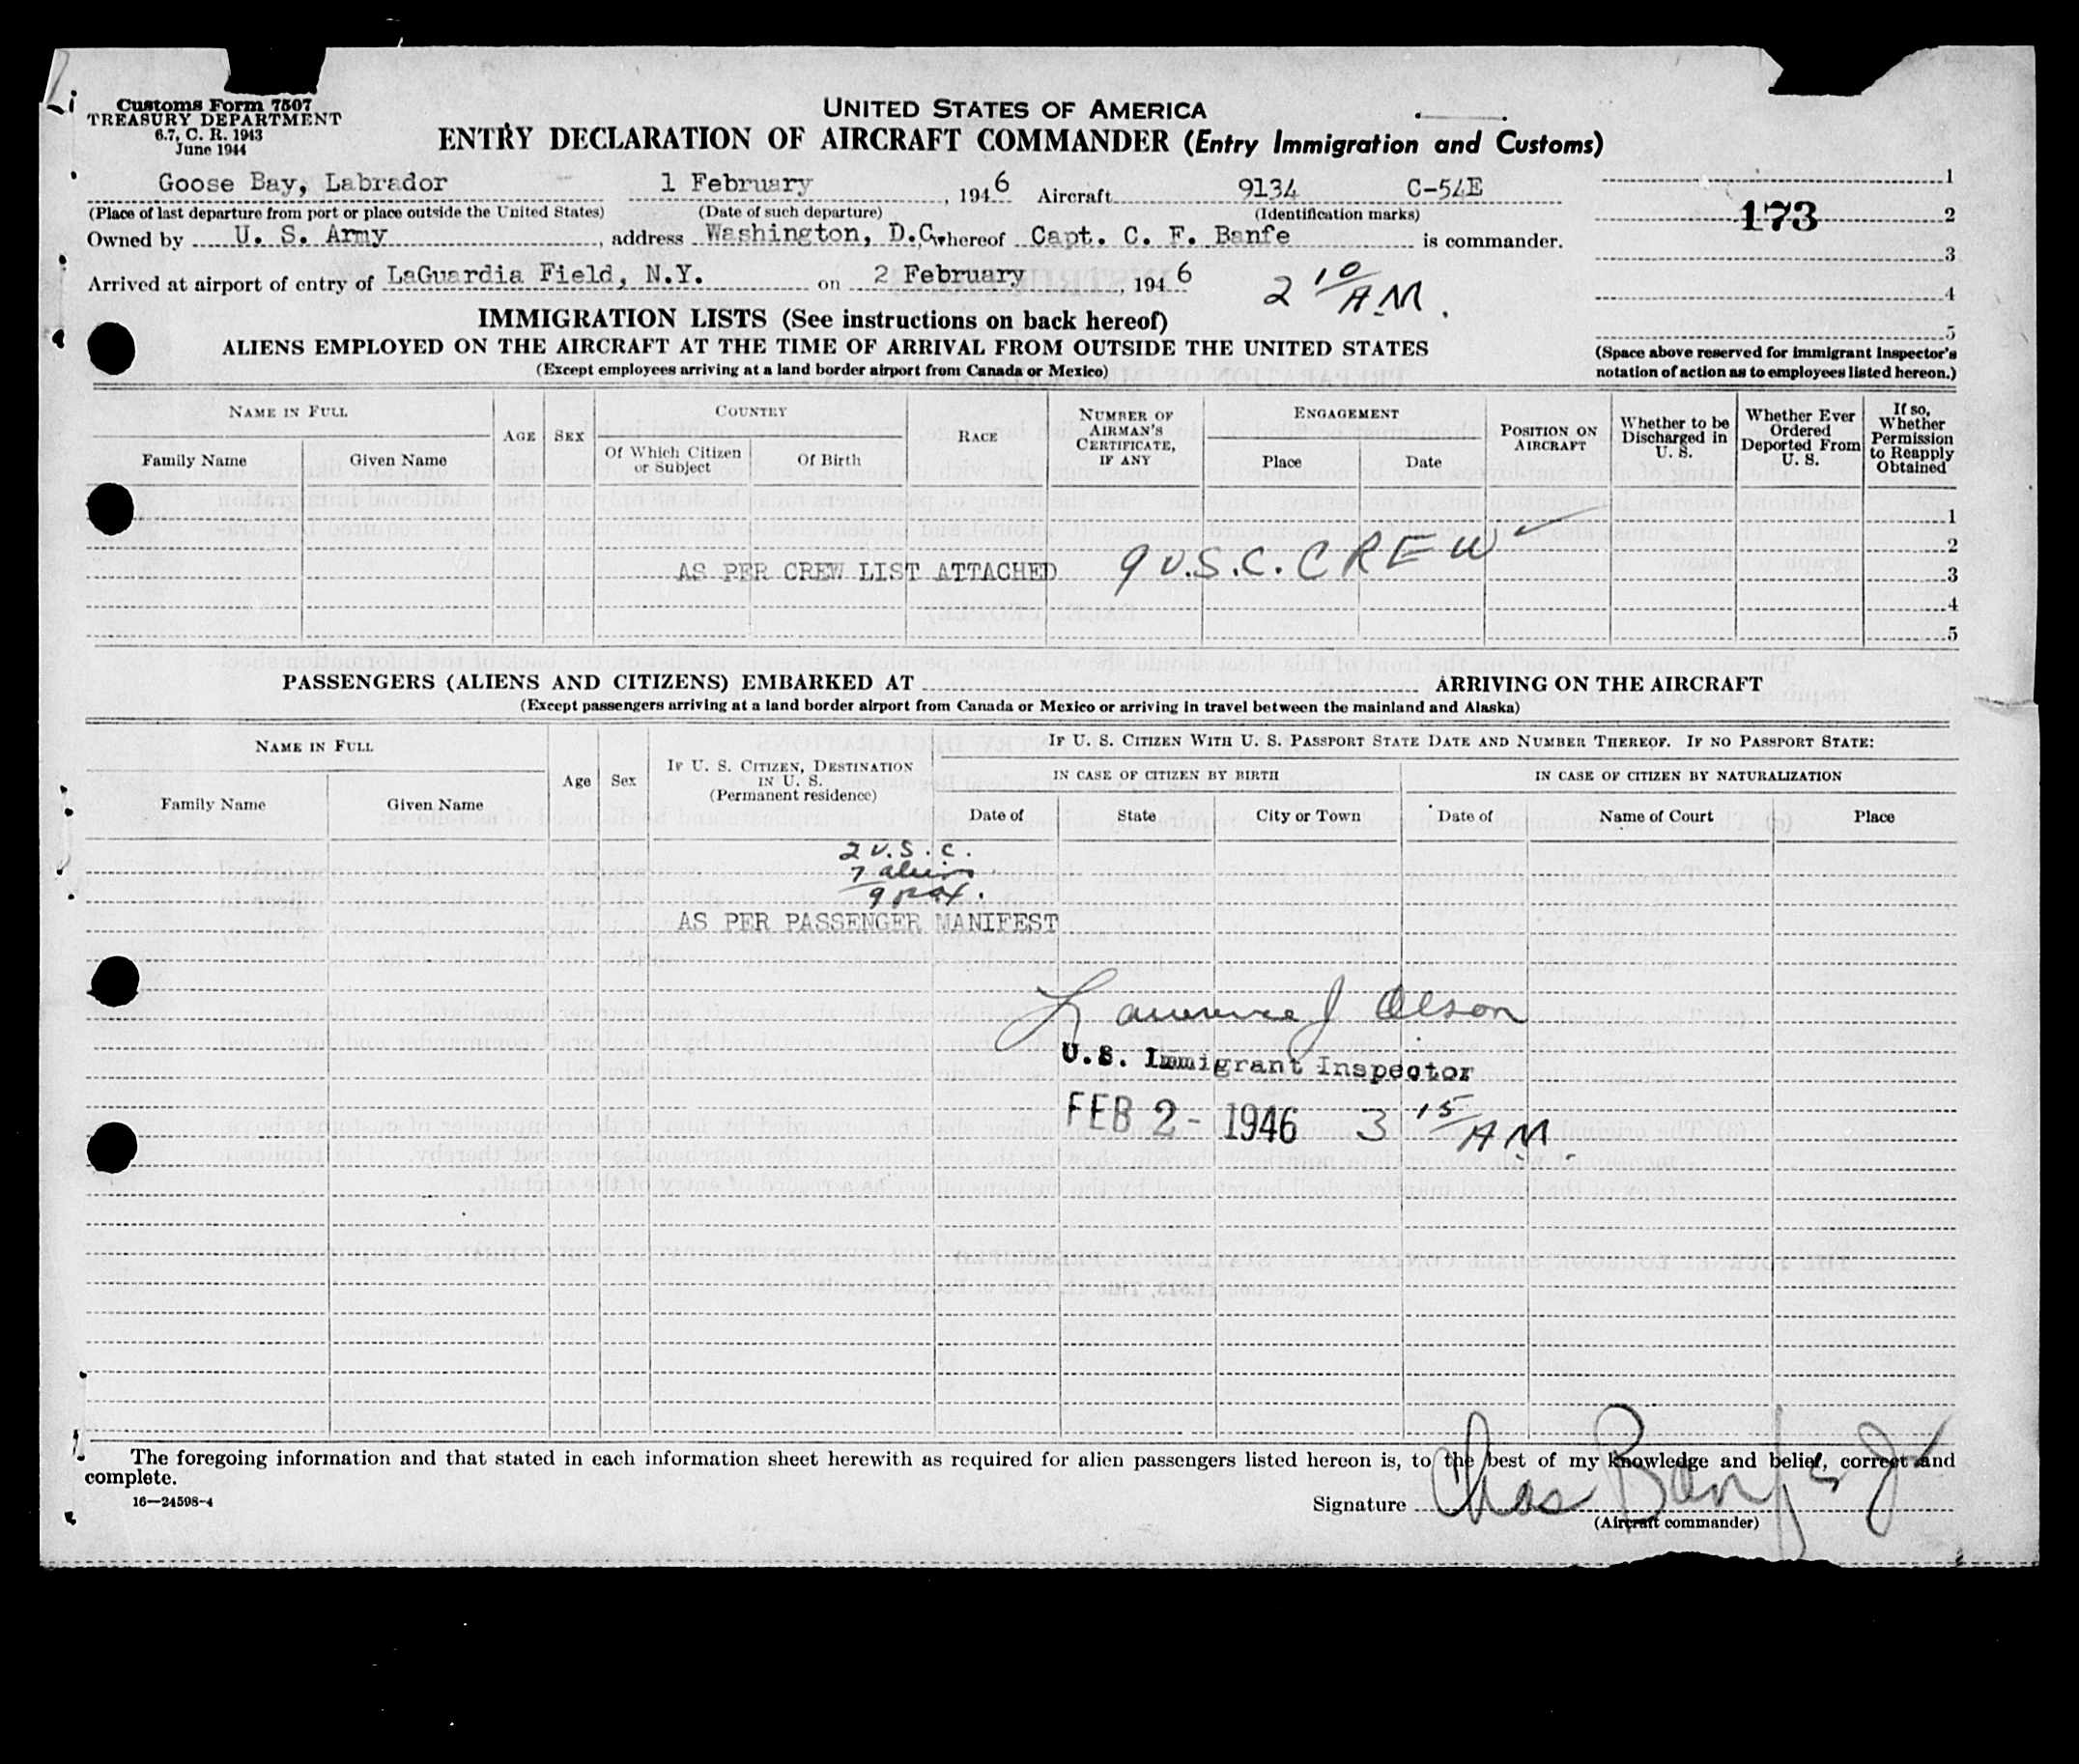 Customs Form 7507
TREASURY DEPARTMENT
6.7, C. R. 1943
June 1944
UNITED STATES OF AMERICA
ENTRY DECLARATION OF AIRCRAFT COMMANDER (Entry Immigration and Customs)
Goose Bay, Labrador 1 February, 1946 Aircraft 9134 C-54E
(Place of last departure from port or place outside the United States) (Date of such departure) (Identification marks)
Owned by U. S. Army, address Washington, D.C. whereof Capt. C. F. Banfe is commander.
Arrived at airport of entry of LaGuardia Field, N.Y. on 2 February, 1946 2 10/AM.
1
173 2
3
4
5
(Space above reserved for immigrant inspector's
notation of action as to employees listed hereon.)
IMMIGRATION LISTS (See instructions on back hereof)
ALIENS EMPLOYED ON THE AIRCRAFT AT THE TIME OF ARRIVAL FROM OUTSIDE THE UNITED STATES
(Except employees arriving at a land border airport from Canada or Mexico)
NAME IN FULL
Family Name Given Name
AGE
SEX
COUNTRY
Of Which Citizen or Subject
Of Birth
RACE
NUMBER OF AIRMAN'S CERTIFICATE, IF ANY
ENGAGEMENT
Place Date
POSITION ON AIRCRAFT
Whether to be Discharged in U. S.
Whether Ever Ordered Deported From U. S.
If so, Whether Permission to Reapply Obtained
1
2
AS PER CREW LIST ATTACHED 9 U.S.C. CREW ✓ 3
4
5
PASSENGERS (ALIENS AND CITIZENS) EMBARKED AT ARRIVING ON THE AIRCRAFT
(Except passengers arriving at a land border airport from Canada or Mexico or arriving in travel between the mainland and Alaska)
NAME IN FULL
Family Name Given Name
Age
Sex
IF U. S. CITIZEN, DESTINATION IN U. S.
(Permanent residence)
IF U. S. CITIZEN WITH U. S. PASSPORT STATE DATE AND NUMBER THEREOF. IF NO PASSPORT STATE:
IN CASE OF CITIZEN BY BIRTH IN CASE OF CITIZEN BY NATURALIZATION
Date of State City or Town Date of Name of Court Place
2 U.S.C.
7 aliens
9 pax.
AS PER PASSENGER MANIFEST
Lawrence J Olson
U.S. Immigrant Inspector
FEB 2 - 1946 3 15/AM.
The foregoing information and that stated in each information sheet herewith as required for alien passengers listed hereon is, to the best of my knowledge and belief, correct and
complete.
16—24598-4
Signature Chas Banfe Jr
(Aircraft commander)